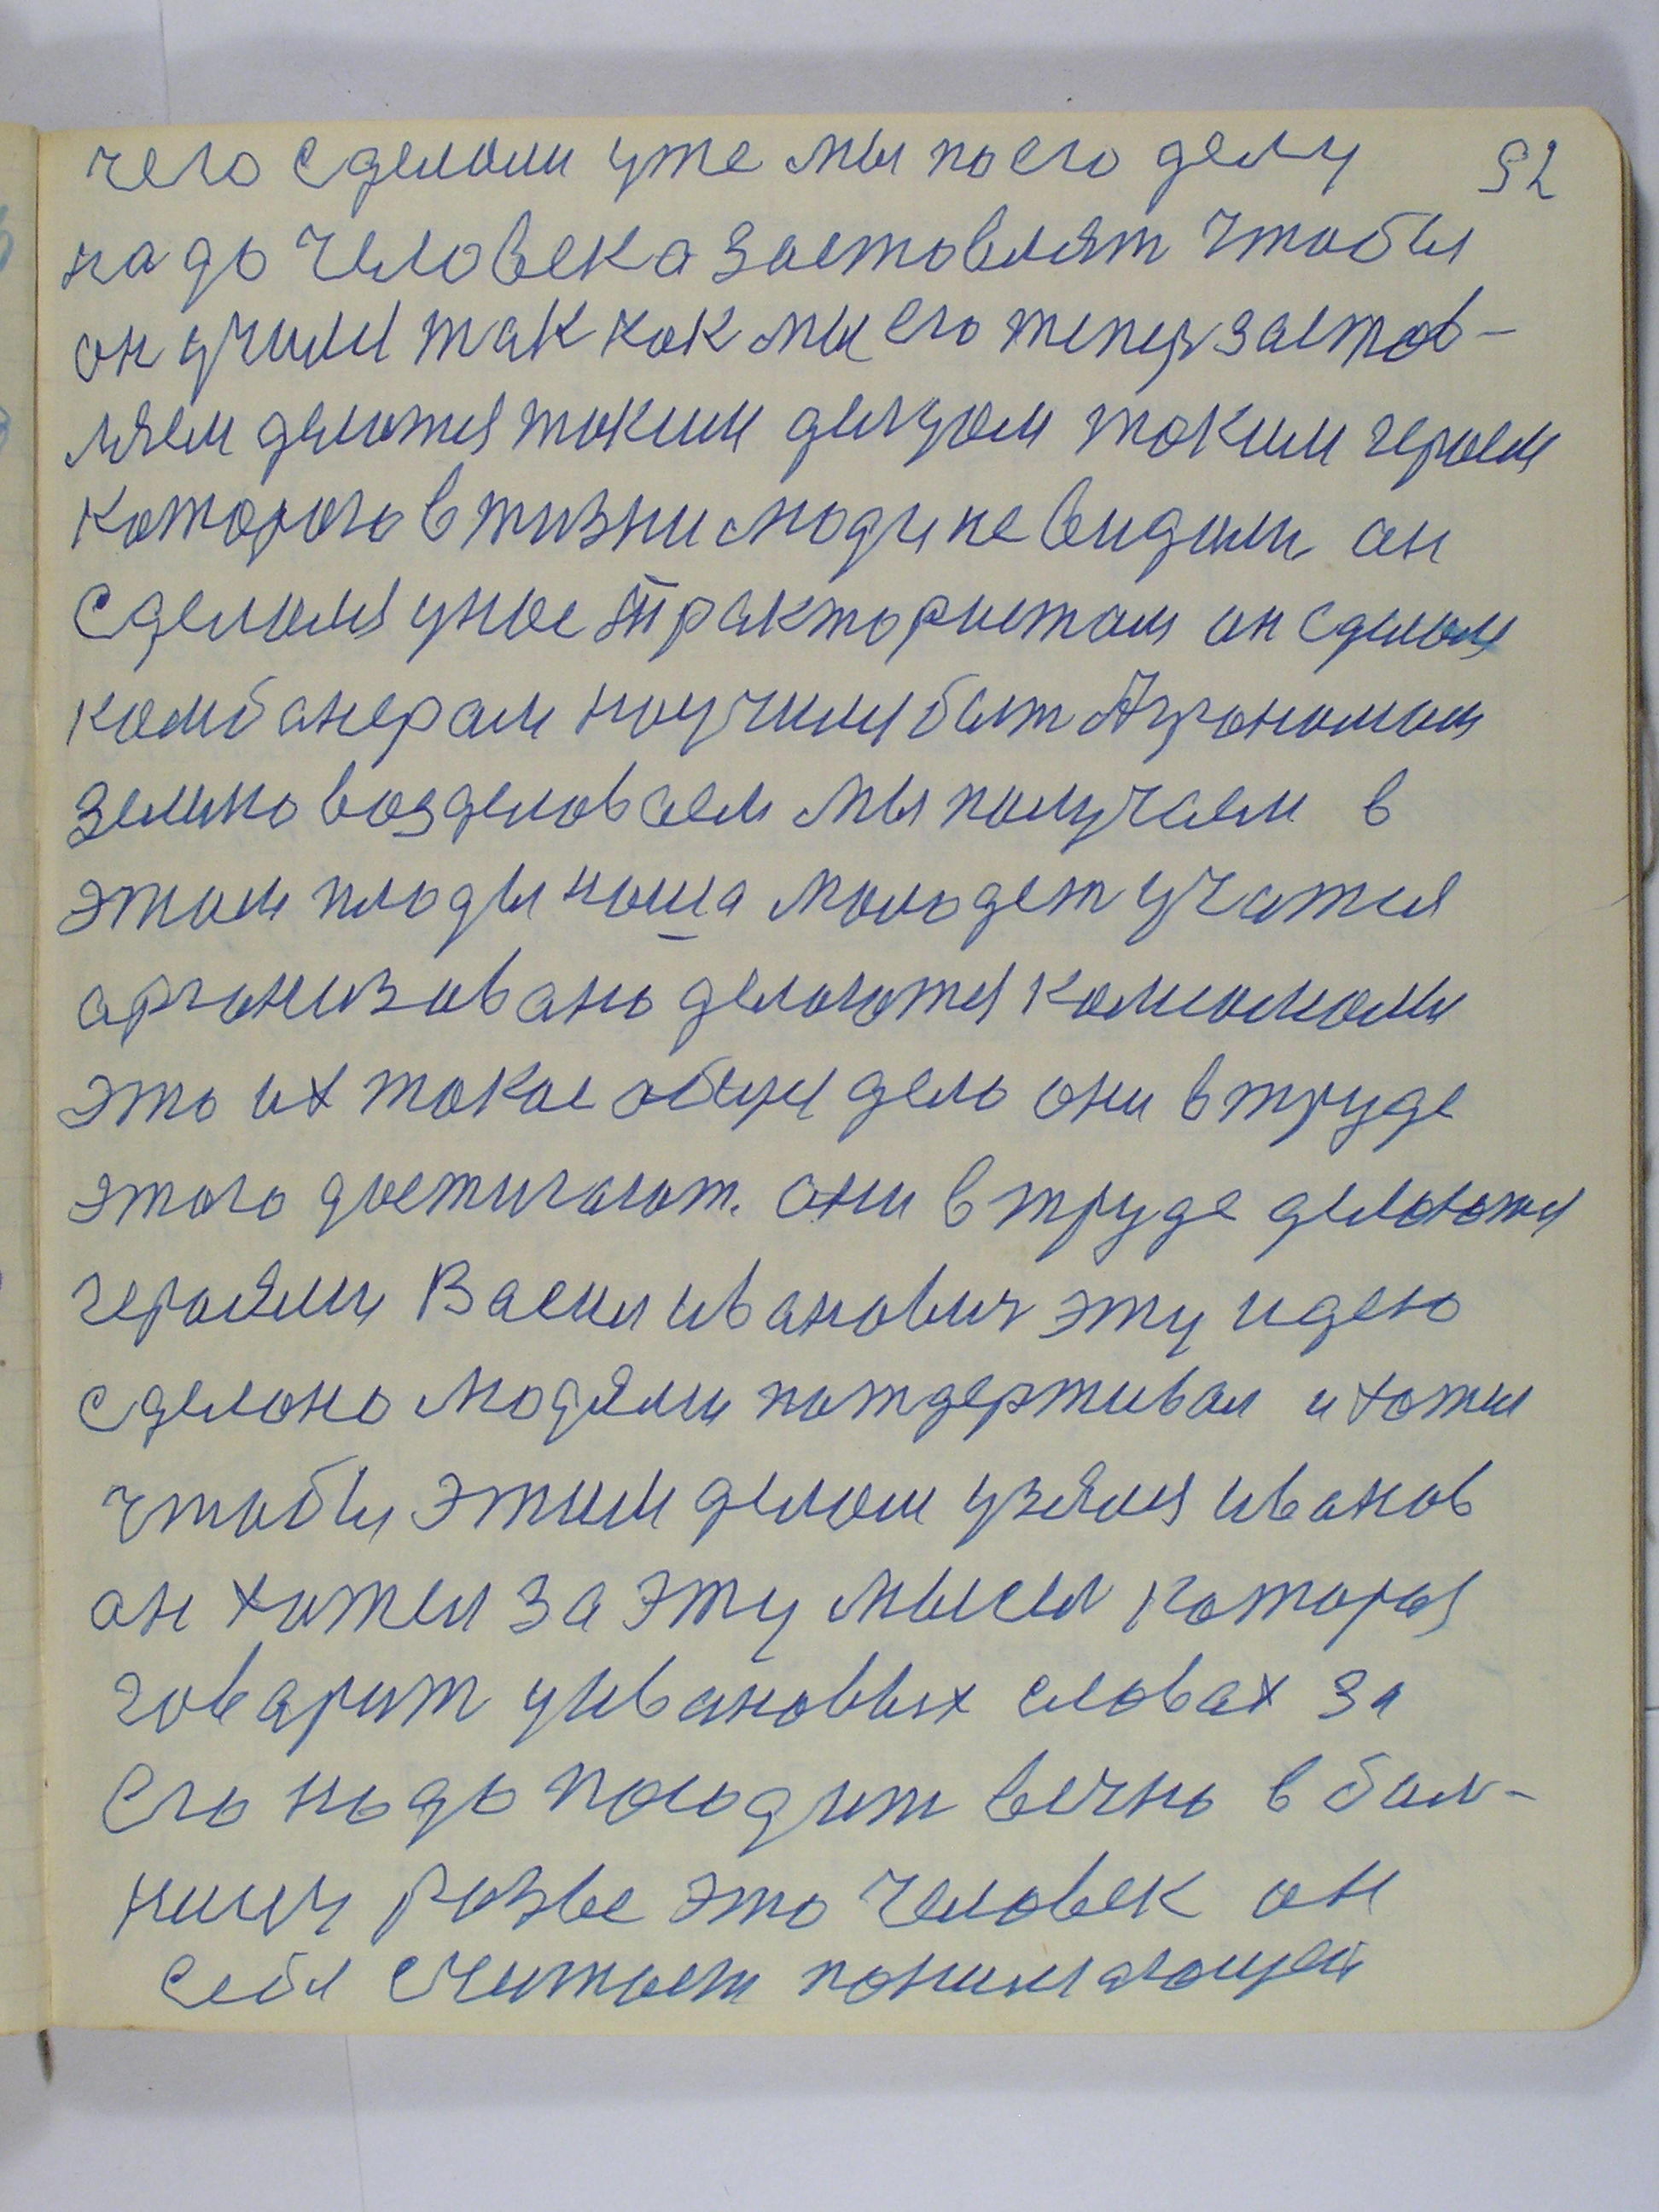 чего сделали уже мы по его делу 92
надо человека заставлят чтобы
он учился так как мы его тепер застав-
ляем делатся таким делцом таким героем
которого в жизни люди не видели он
сделался у нас трактористам он сделался
комбанерам научился быт Агрономам
землю возделоваем мы получаем в
этом плоды наша молодеж учатся
арганизовано делаются
это их такое общи дело они в труде
этого достигают. они в труде делаются
героями Васил иванович эту идею
сделано людями потдерживал и хотел
чтобы этим делом узялся иванов
он хотел за эту мысел которая
говарит у ивановых словах за
его надо посодит вечно в бол-
ницу разве это человек он
себя считает понимающей